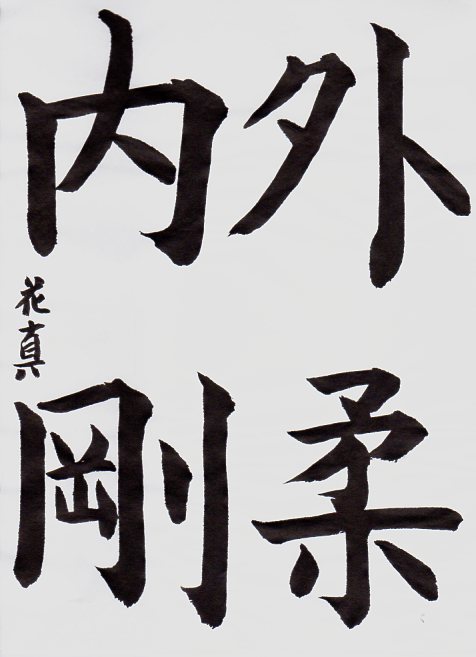 外柔
内剛
花真